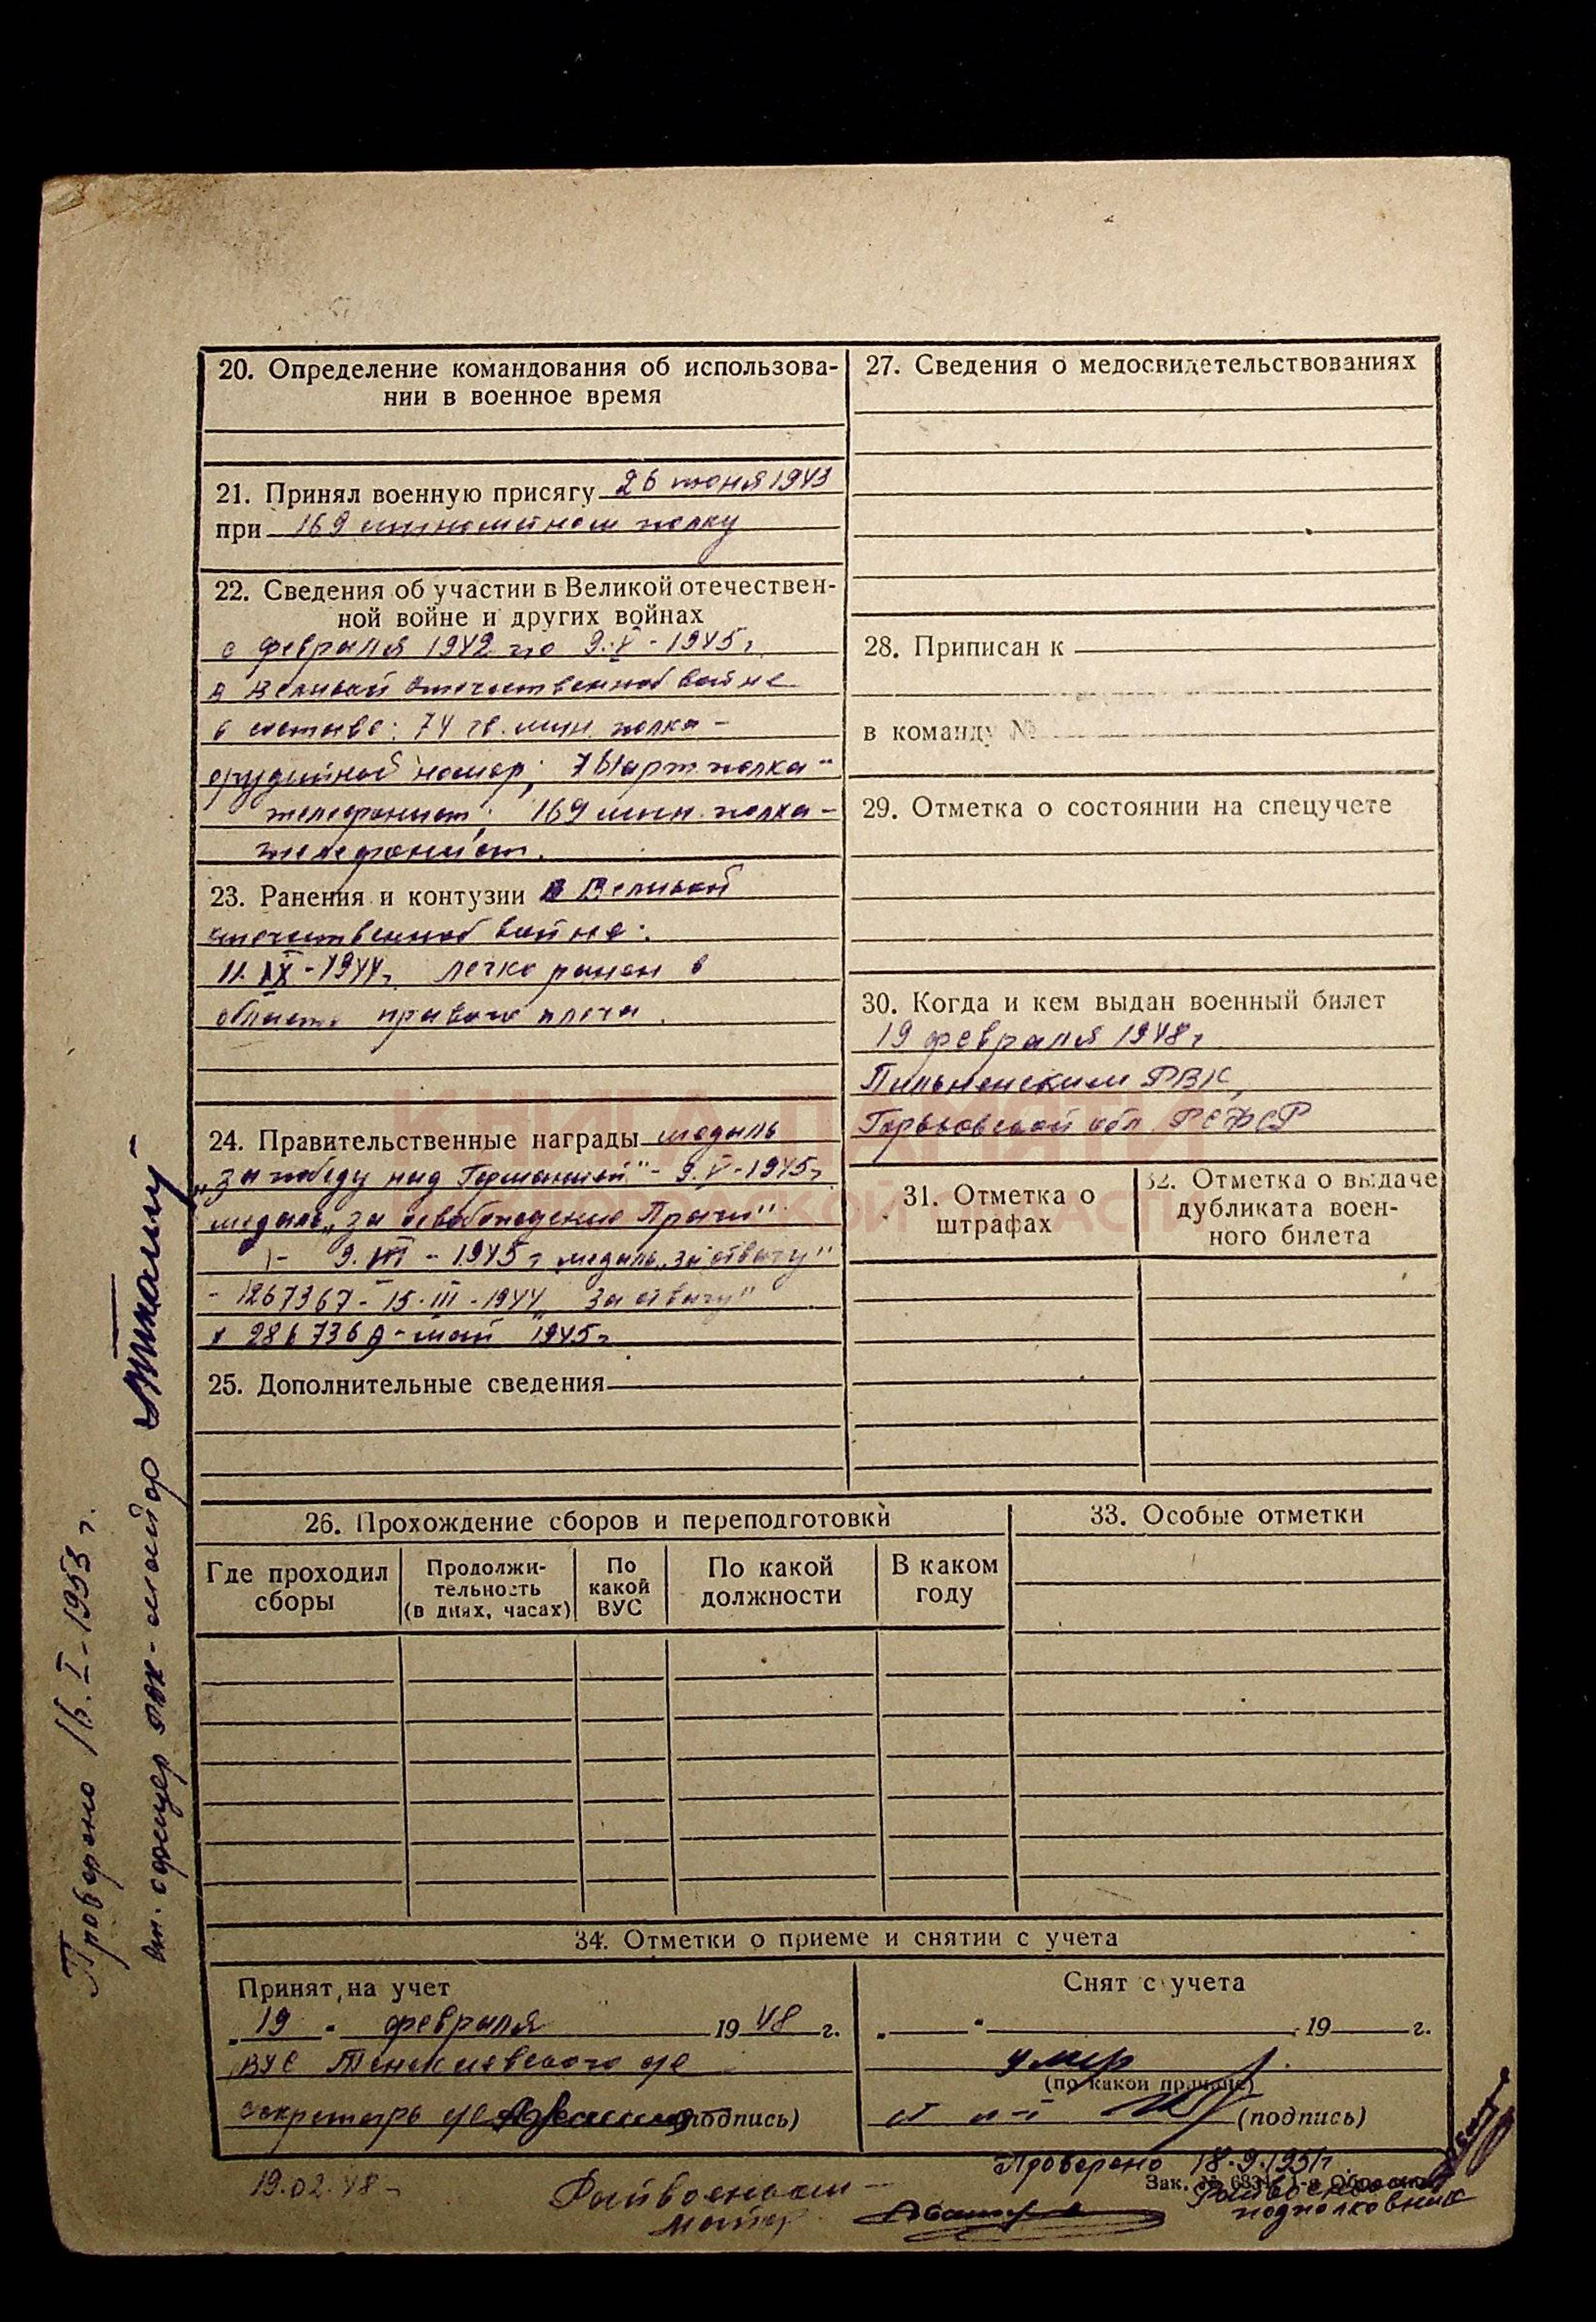 20. Определение командования об использова-
нии в военное время
21. Принял военную присягу 26 июня 1943
при 169 минометном полку
22. Сведения об участии в Великой отечествен-
ной войне и других войнах
с февраля 1942 по 9.V-1945г.
в Великой отечественной войне
в составе: 74 гв. мин. полка -
орудийный номер; арт. полка -
телефонист; 169 мин. полка -
телефонист.
23. Ранения и контузии в Великой
отечественной войне:
11.IX-1944г. легко ранен в
область правого плеча.
24. Правительственные награды медаль
„За победу над Германией" - 9.V-1945г
медаль „За освобождение Праги"
- 9.VII - 1945г медаль „За отвагу"
- 1267367 - 15.III-1944 „За отвагу"
май 1945г
25. Дополнительные сведения
26. Прохождение сборов и переподготовки
Где проходил
сборы
Продолжи-
тельность
(в днях, часах)
По
какой
ВУС
По какой
должности
В каком
году
27. Сведения о медосвидетельствованиях
28. Приписан к
в команду №
29. Отметка о состоянии на спецучете
30. Когда и кем выдан военный билет
19 февраля 1948г
Пильненским РВК,
Горьковской обл. РСФСР
31. Отметка о
штрафах
32. Отметка о выдаче
дубликата воен-
ного билета
33. Особые отметки
34. Отметки о приеме и снятии с учета
Принят на учет
„19" февраля 1948 г.
ВУС с/с
секретарь с/с (подпись)
Снят с учета
„ " 19 г.
умер
(по какой причине)
(подпись)
19.02.48г
Райвоенком -
майор
Проверено 18.9.1951г.
Зак. № 1-я
Райвоенком
подполковник
Проверено 16.I-1953 г.
офицер РВК - майор
КНИГА ПАМЯТИ
НИЖЕГОРОДСКОЙ ОБЛАСТИ